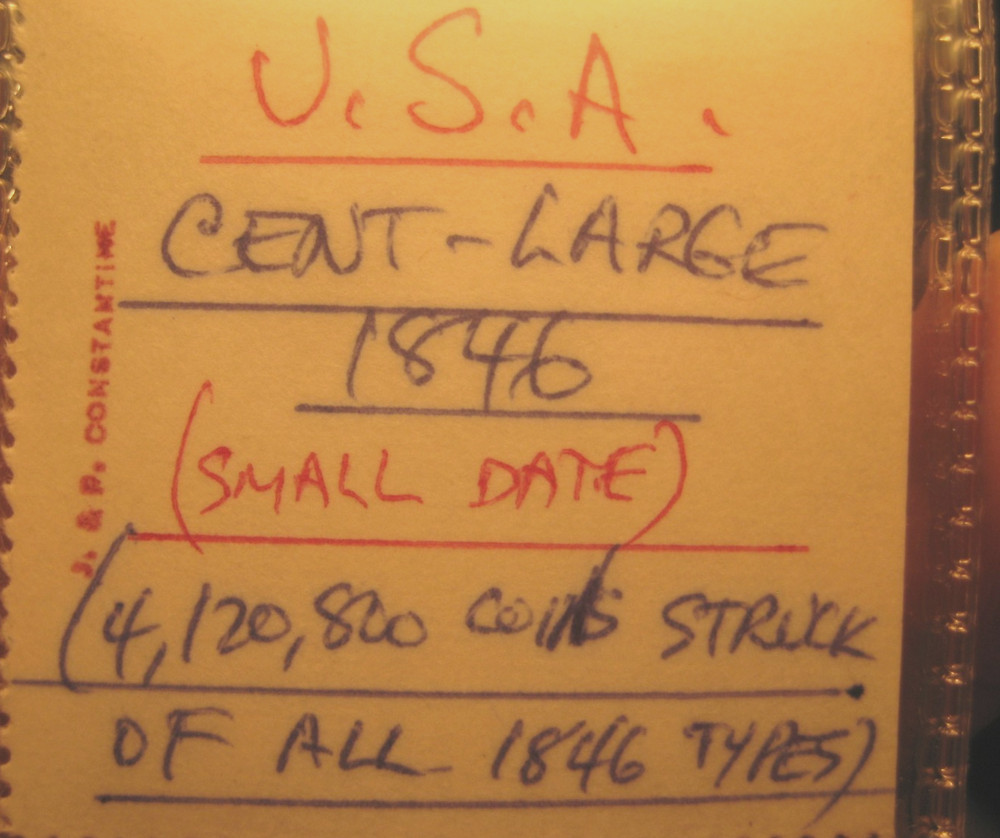 U.S.A.
CENT-LARGE
1846
(SMALL DATE)
(4,120,800 COINS STRUCK
OF ALL 1846 TYPES)
J. & P. CONSTANTINE